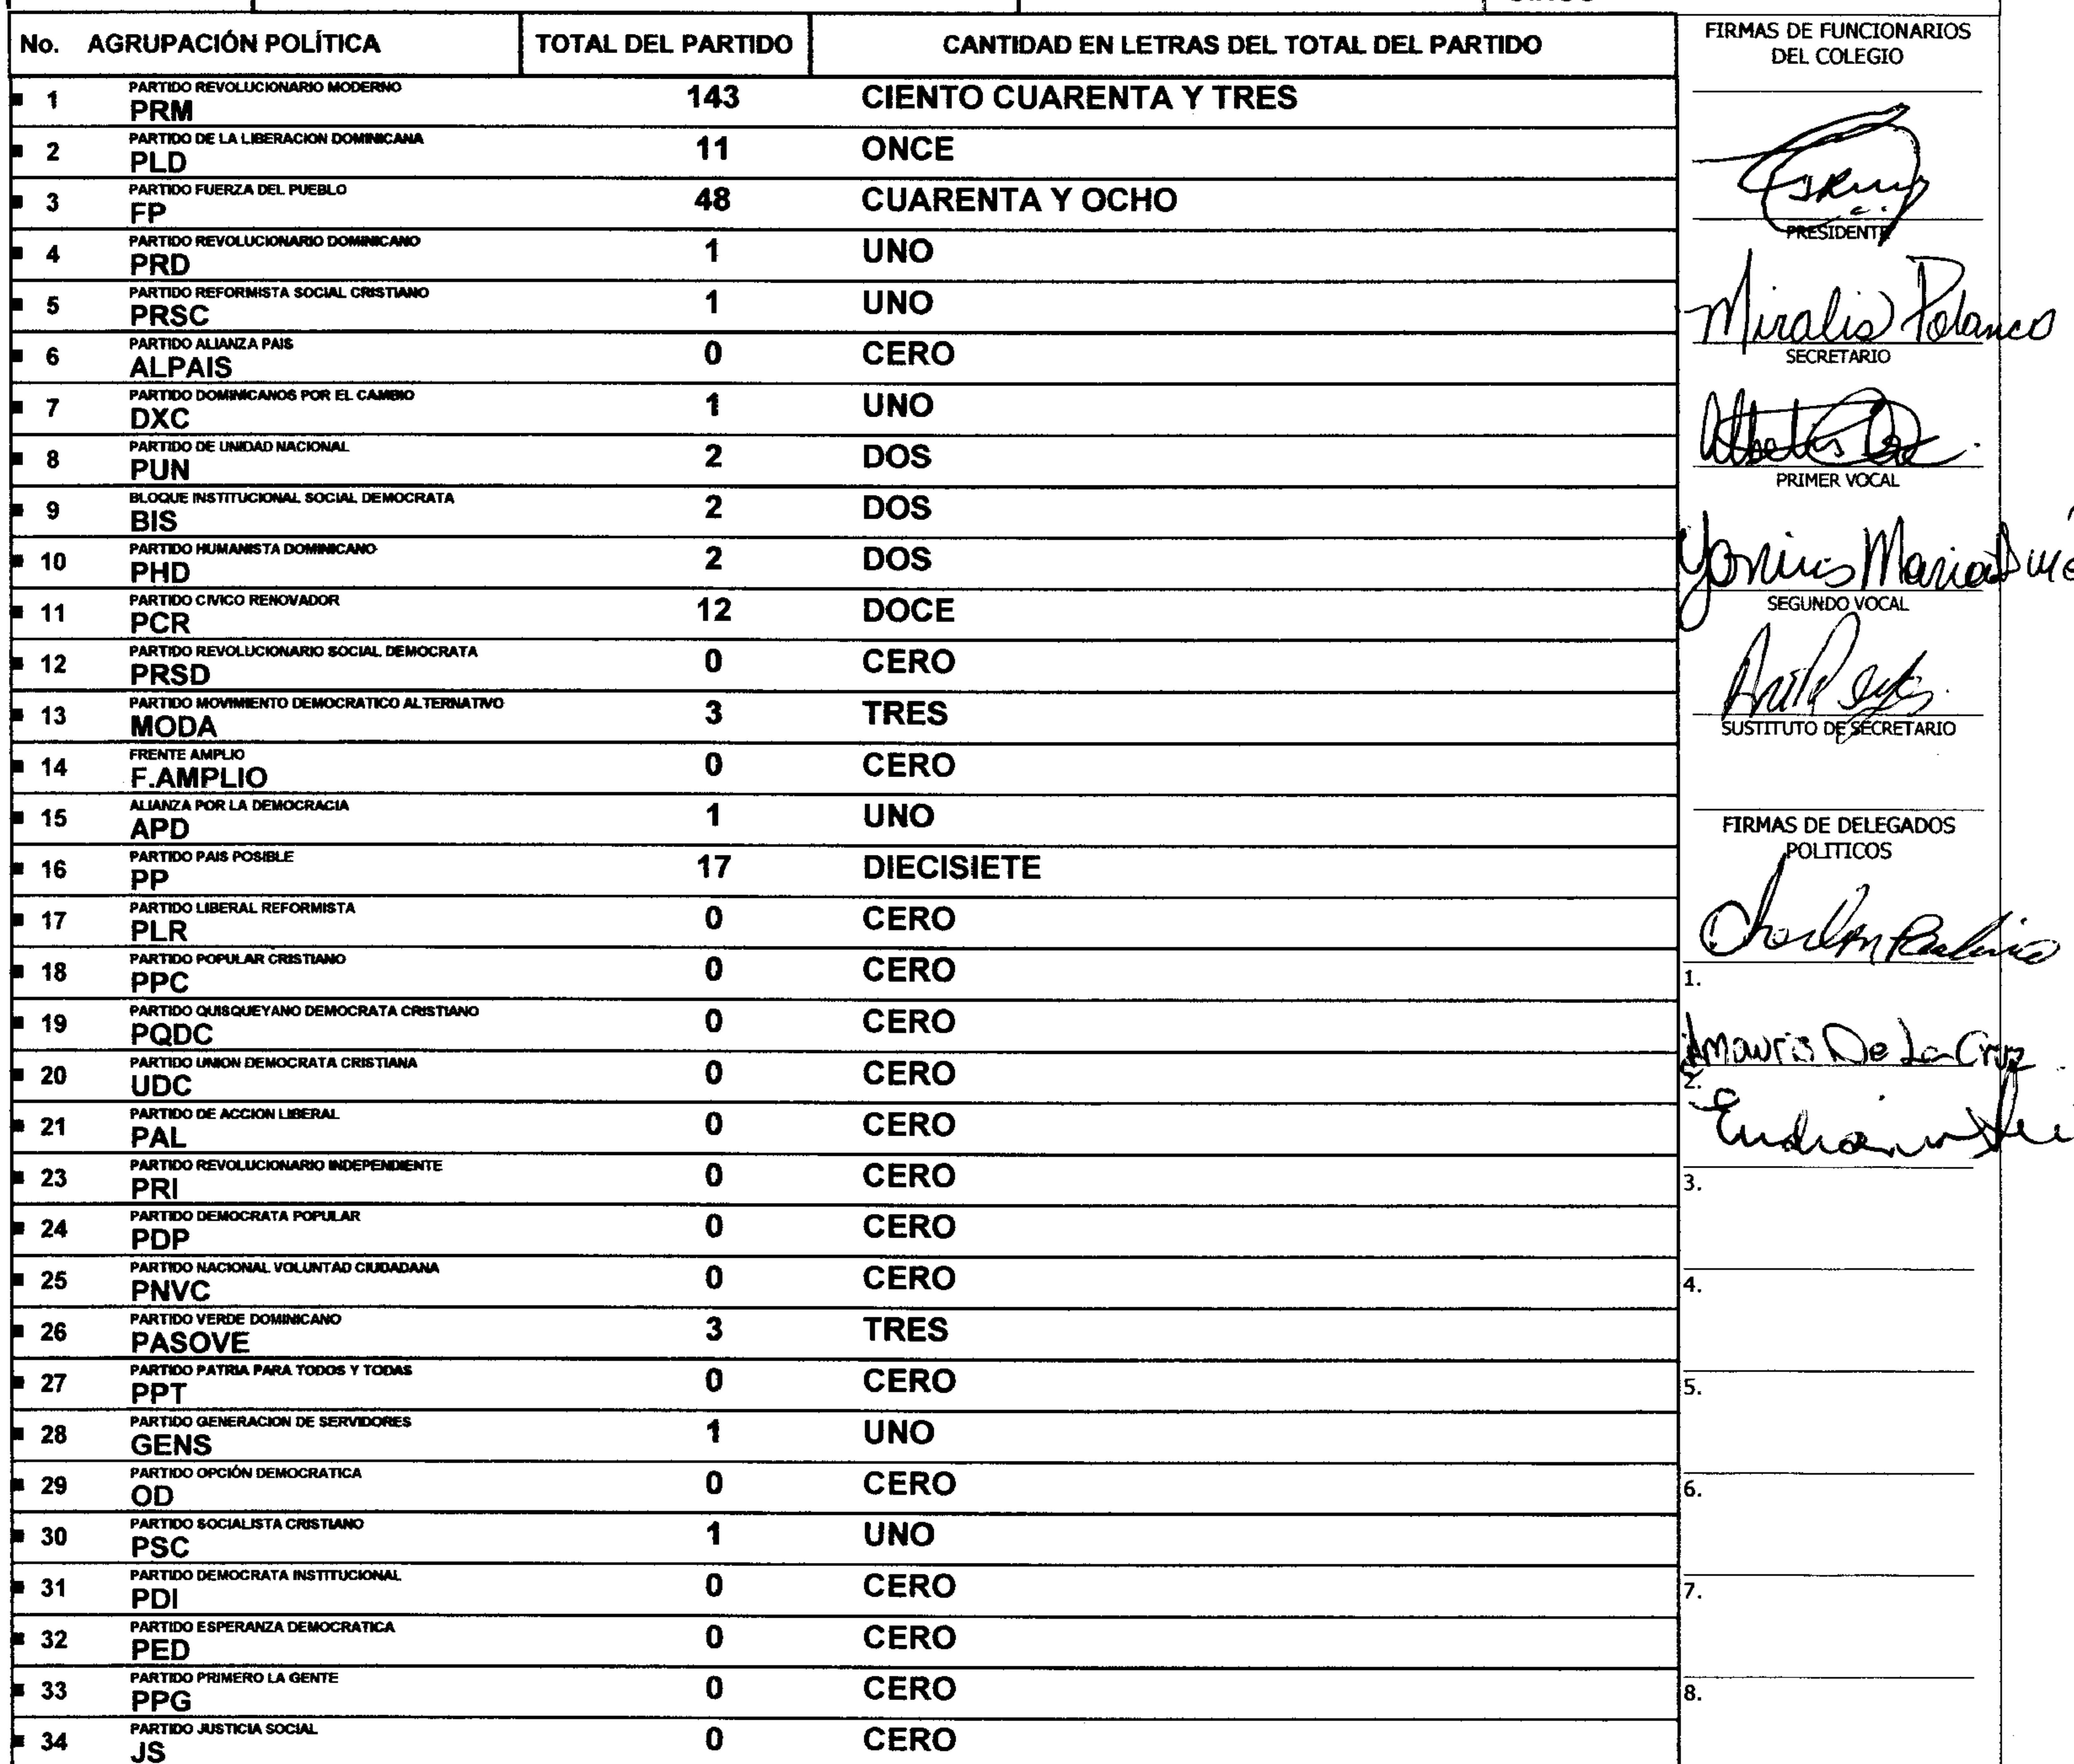 No. AGRUPACIÓN POLÍTICA TOTAL DEL PARTIDO CANTIDAD EN LETRAS DEL TOTAL DEL PARTIDO
PARTIDO REVOLUCIONARIO MODERNO
1 PRM 143 CIENTO CUARENTA Y TRES
PARTIDO DE LA LIBERACION DOMINICANA
2 PLD 11 ONCE
PARTIDO FUERZA DEL PUEBLO
3 FP 48 CUARENTA Y OCHO
PARTIDO REVOLUCIONARIO DOMINICANO
4 PRD 1 UNO
PARTIDO REFORMISTA SOCIAL CRISTIANO
5 PRSC 1 UNO
PARTIDO ALIANZA PAIS
6 ALPAIS 0 CERO
PARTIDO DOMINICANOS POR EL CAMBIO
7 DXC 1 UNO
PARTIDO DE UNIDAD NACIONAL
8 PUN 2 DOS
BLOQUE INSTITUCIONAL SOCIAL DEMOCRATA
9 BIS 2 DOS
PARTIDO HUMANISTA DOMINICANO
10 PHD 2 DOS
PARTIDO CIVICO RENOVADOR
11 PCR 12 DOCE
PARTIDO REVOLUCIONARIO SOCIAL DEMOCRATA
12 PRSD 0 CERO
PARTIDO MOVIMIENTO DEMOCRATICO ALTERNATIVO
13 MODA 3 TRES
FRENTE AMPLIO
14 F.AMPLIO 0 CERO
ALIANZA POR LA DEMOCRACIA
15 APD 1 UNO
PARTIDO PAIS POSIBLE
16 PP 17 DIECISIETE
PARTIDO LIBERAL REFORMISTA
17 PLR 0 CERO
PARTIDO POPULAR CRISTIANO
18 PPC 0 CERO
PARTIDO QUISQUEYANO DEMOCRATA CRISTIANO
19 PQDC 0 CERO
PARTIDO UNION DEMOCRATA CRISTIANA
20 UDC 0 CERO
PARTIDO DE ACCION LIBERAL
21 PAL 0 CERO
PARTIDO REVOLUCIONARIO INDEPENDIENTE
23 PRI 0 CERO
PARTIDO DEMOCRATA POPULAR
24 PDP 0 CERO
PARTIDO NACIONAL VOLUNTAD CIUDADANA
25 PNVC 0 CERO
PARTIDO VERDE DOMINICANO
26 PASOVE 3 TRES
PARTIDO PATRIA PARA TODOS Y TODAS
27 PPT 0 CERO
PARTIDO GENERACION DE SERVIDORES
28 GENS 1 UNO
PARTIDO OPCIÓN DEMOCRATICA
29 OD 0 CERO
PARTIDO SOCIALISTA CRISTIANO
30 PSC 1 UNO
PARTIDO DEMOCRATA INSTITUCIONAL
31 PDI 0 CERO
PARTIDO ESPERANZA DEMOCRATICA
32 PED 0 CERO
PARTIDO PRIMERO LA GENTE
33 PPG 0 CERO
PARTIDO JUSTICIA SOCIAL
34 JS 0 CERO
FIRMAS DE FUNCIONARIOS
DEL COLEGIO
PRESIDENTE
Miralis Polanco
SECRETARIO
PRIMER VOCAL
Maria
SEGUNDO VOCAL
SUSTITUTO DE SECRETARIO
FIRMAS DE DELEGADOS
POLITICOS
1.
De La Cruz
2.
3.
4.
5.
6.
7.
8.